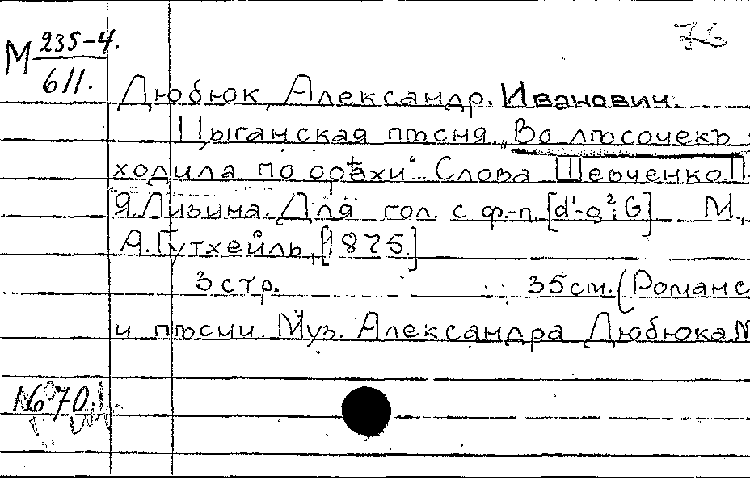 М 235-4.
611.
76
Дюбюк, Александр. Иванович.
Цыганская пѣсня „Во лѣсочекъ я
ходила по орѣхи“. Слова Шевченко. П.
Я. Лизина. Для гол. с ф.-п. [d¹-g²; G] М.,
А. Гутхейль, [1875]
3 стр. 35 см. (Романс
и пѣсни. Муз. Александра Дюбюка №
1670.